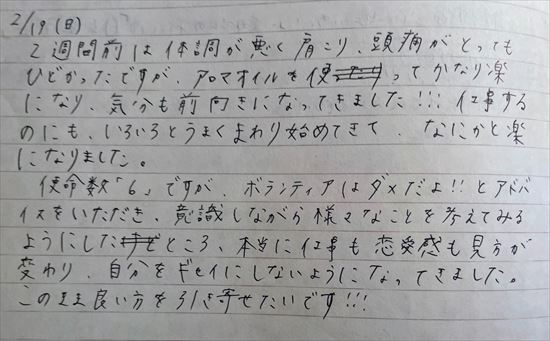 2/19(日)
2週間前は体調が悪く肩こり、頭痛がとっても
ひどかったですが、アロマオイルを使ってかなり楽
になり、気分も前向きになってきました!!! 仕事する
のにも、いろいろとうまくまわり始めてきて、なにかと楽
になりました。
使命数「6」ですが、ボランティアはダメだよ!!とアドバ
イスをいただき、意識しながら様々なことを考えてみる
ようにしたところ、本当に仕事も恋愛感も見方が
変わり、自分をギセイにしないようになってきました。
このまま良い方を引き寄せたいです!!!